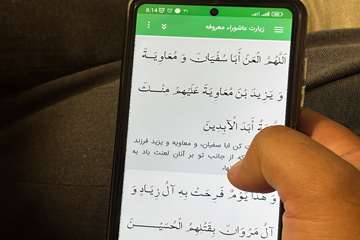 8:14
زیارت عاشوراء معروفه
اَللّٰهُمَّ الْعَنْ أَبَا سُفْيَانَ وَ مُعَاوِيَةَ
وَ يَزِيدَ بْنَ مُعَاوِيَةَ عَلَيْهِمْ مِنْكَ
أَبَدَ الْآبِدِينَ
کن ابا سفیان، و معاویه و یزید فرزند
که از جانب تو بر آنان لعنت باد به
وَ هٰذَا يَوْمٌ فَرِحَتْ بِهِ آلُ زِيَادٍ وَ
آلُ مَرْوَانَ بِقَتْلِهِمُ الْحُسَيْنَ